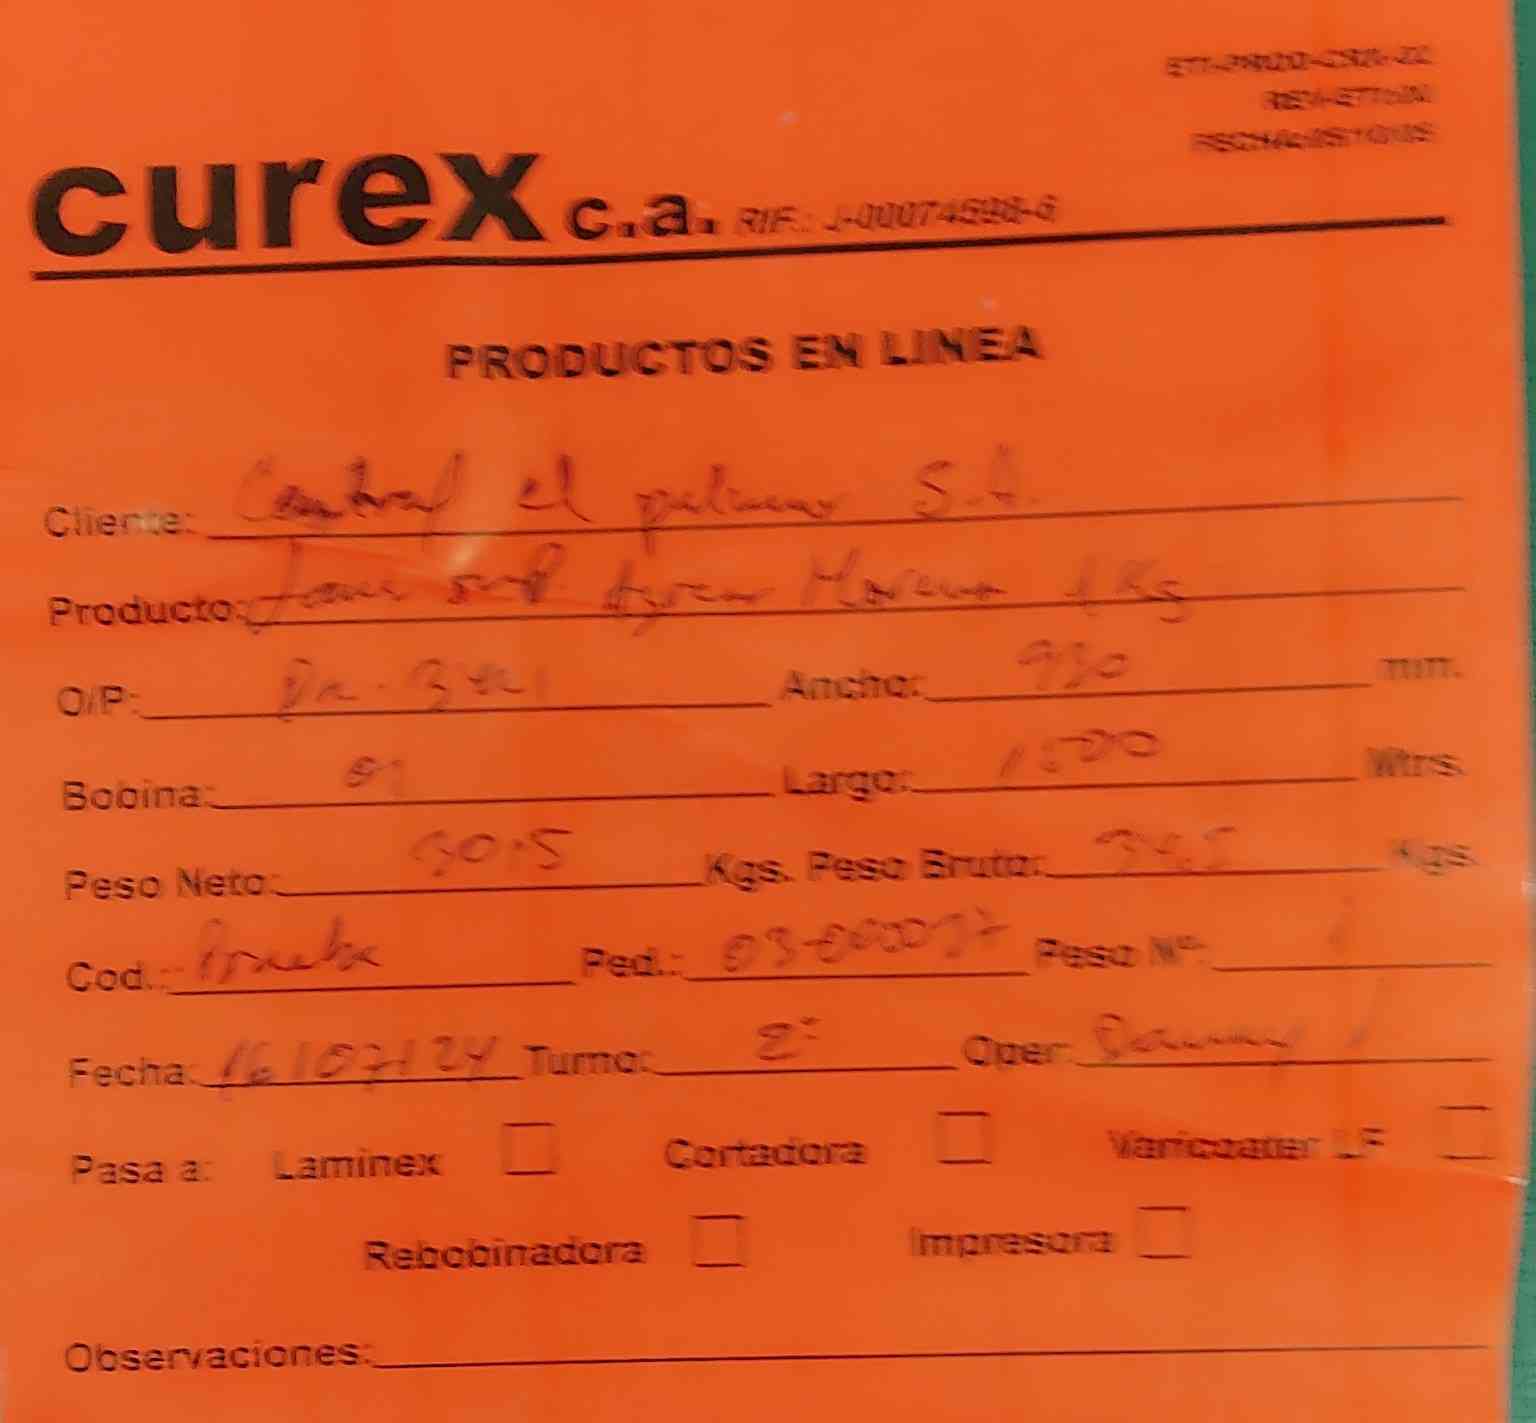 curex c.a. RIF.: J-00074598-6
PRODUCTOS EN LINEA
Cliente: Central el palmar S.A.
Producto: Moreno 1 Kg
O/P: Ancho: 930 mm.
Bobina: 01 Largo: 1500 Mtrs.
Peso Neto: 30.5 Kgs. Peso Bruto: Kgs.
Cod.: Prueba Ped.: Peso Nº:
Fecha: 16/07/24 Turno: 2º Oper: Danny
Pasa a: Laminex Cortadora Varicoater LF
Rebobinadora Impresora
Observaciones: